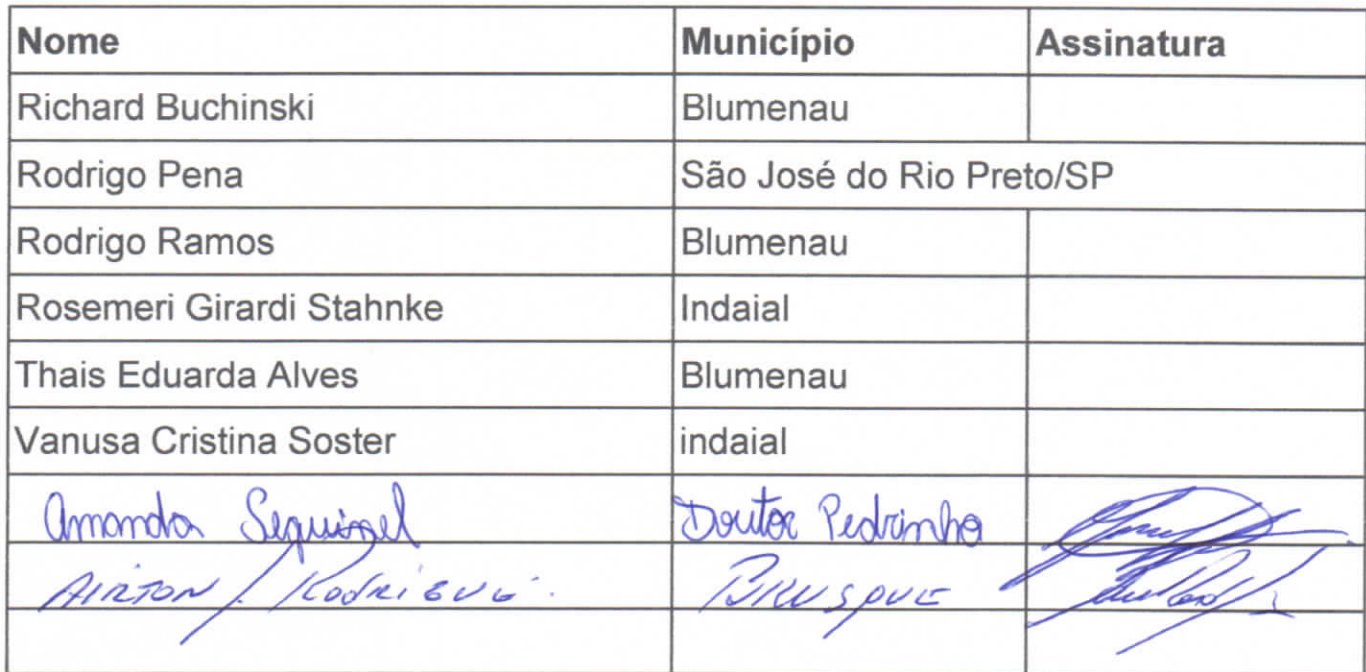 Nome Município Assinatura
Richard Buchinski Blumenau
Rodrigo Pena São José do Rio Preto/SP
Rodrigo Ramos Blumenau
Rosemeri Girardi Stahnke Indaial
Thais Eduarda Alves Blumenau
Vanusa Cristina Soster indaial
Amanda Sequinel Doutor Pedrinho
AIRTON BRUSQUE